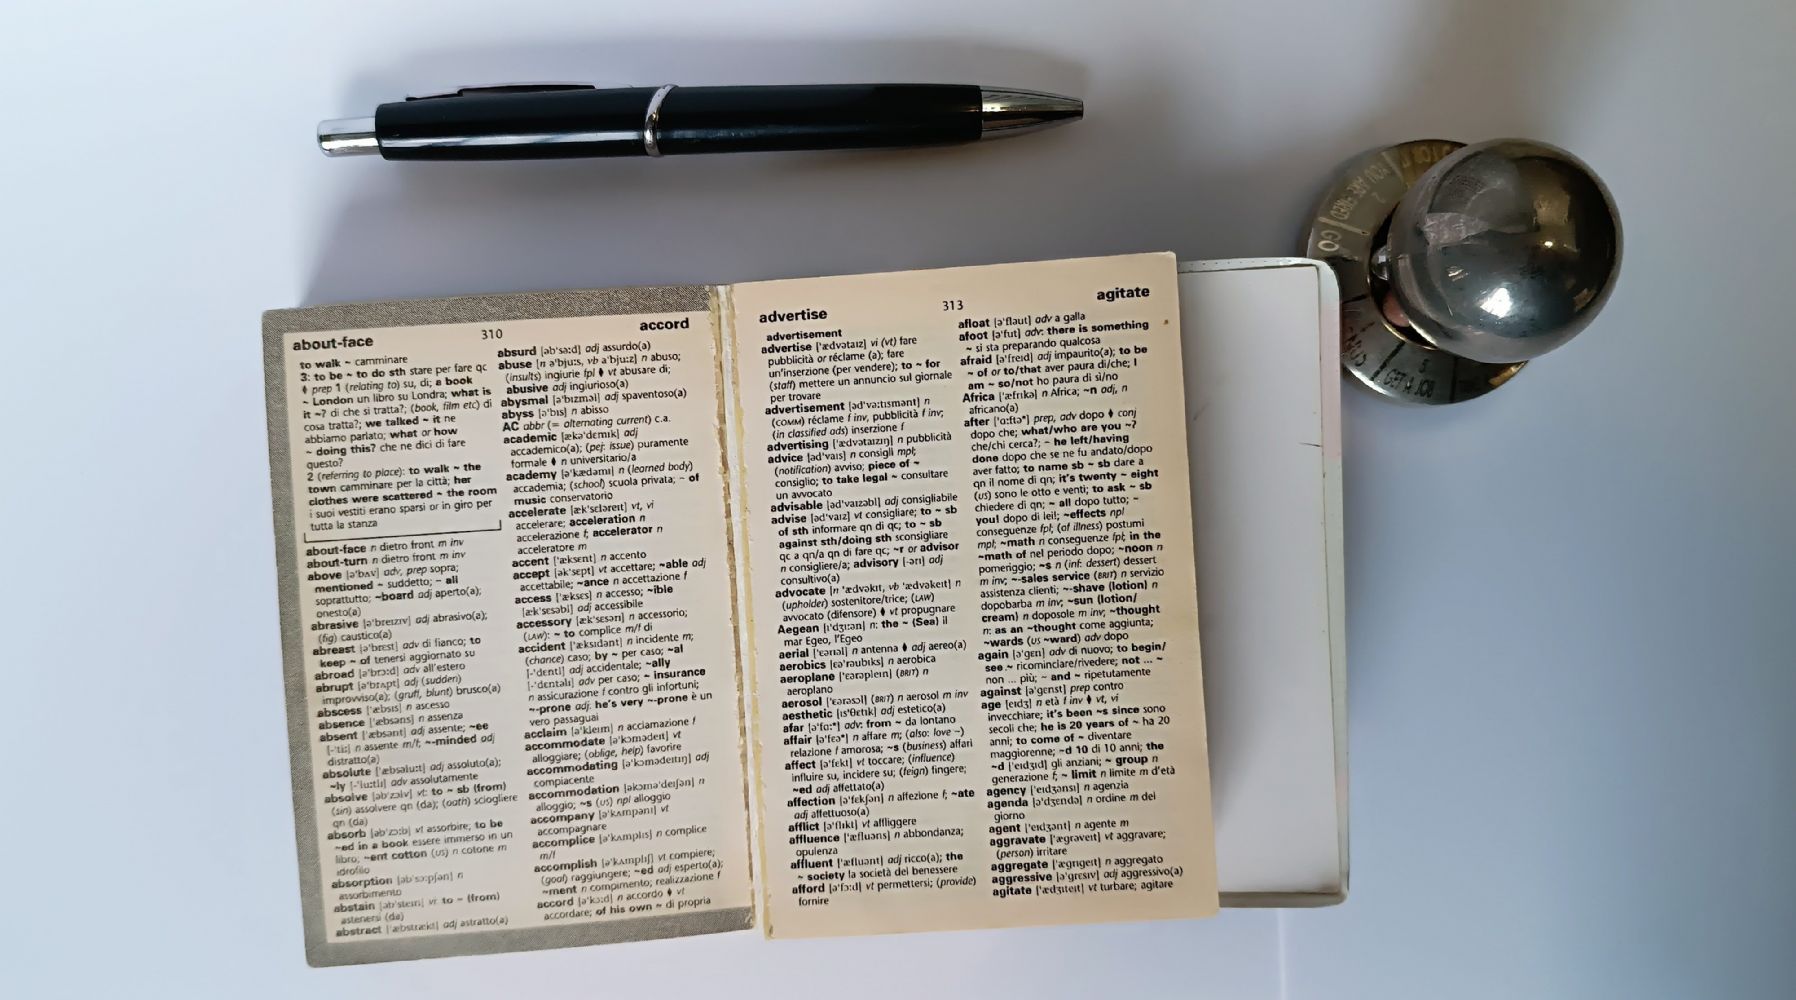 about-face 310 accord
to walk ~ camminare
3: to be ~ to do sth stare per fare qc
♦ prep 1 (relating to) su, di; a book
~ London un libro su Londra; what is
it ~? di che si tratta?; (book, film etc) di
cosa tratta?; we talked ~ it ne
abbiamo parlato; what or how
~ doing this? che ne dici di fare
questo?
2 (referring to place): to walk ~ the
town camminare per la città; her
clothes were scattered ~ the room
i suoi vestiti erano sparsi or in giro per
tutta la stanza
about-face n dietro front m inv
about-turn n dietro front m inv
above [ə'bʌv] adv, prep sopra;
mentioned ~ suddetto; ~ all
soprattutto; ~board adj aperto(a);
onesto(a)
abrasive [ə'breɪzɪv] adj abrasivo(a);
(fig) caustico(a)
abreast [ə'brɛst] adv di fianco; to
keep ~ of tenersi aggiornato su
abroad [ə'brɔ:d] adv all'estero
abrupt [ə'brʌpt] adj (sudden)
improvviso(a); (gruff, blunt) brusco(a)
abscess ['æbsɪs] n ascesso
absence ['æbsəns] n assenza
absent ['æbsənt] adj assente; ~ee
[-'ti:] n assente m/f; ~-minded adj
distratto(a)
absolute ['æbsəlu:t] adj assoluto(a);
~ly [-'lu:tlɪ] adv assolutamente
absolve [əb'zɔlv] vt: to ~ sb (from)
(sin) assolvere qn (da); (oath) sciogliere
qn (da)
absorb [əb'zɔ:b] vt assorbire; to be
~ed in a book essere immerso in un
libro; ~ent cotton (US) n cotone m
idrofilo
absorption [əb'sɔ:pʃən] n
assorbimento
abstain [əb'steɪn] vi: to ~ (from)
astenersi (da)
abstract ['æbstrækt] adj astratto(a)
absurd [əb'sə:d] adj assurdo(a)
abuse [n ə'bju:s, vb ə'bju:z] n abuso;
(insults) ingiurie fpl ♦ vt abusare di;
abusive adj ingiurioso(a)
abysmal [ə'bɪzməl] adj spaventoso(a)
abyss [ə'bɪs] n abisso
AC abbr (= alternating current) c.a.
academic [ækə'dɛmɪk] adj
accademico(a); (pej: issue) puramente
formale ♦ n universitario/a
academy [ə'kædəmɪ] n (learned body)
accademia; (school) scuola privata; ~ of
music conservatorio
accelerate [æk'sɛləreɪt] vt, vi
accelerare; acceleration n
accelerazione f; accelerator n
acceleratore m
accent ['æksɛnt] n accento
accept [ək'sɛpt] vt accettare; ~able adj
accettabile; ~ance n accettazione f
access ['æksɛs] n accesso; ~ible
[æk'sɛsəbl] adj accessibile
accessory [æk'sɛsərɪ] n accessorio;
(LAW): ~ to complice m/f di
accident ['æksɪdənt] n incidente m;
(chance) caso; by ~ per caso; ~al
[-'dɛntl] adj accidentale; ~ally
[-'dɛntəlɪ] adv per caso; ~ insurance
n assicurazione f contro gli infortuni;
~-prone adj: he's very ~-prone è un
vero passaguai
acclaim [ə'kleɪm] n acclamazione f
accommodate [ə'kɔmədeɪt] vt
alloggiare; (oblige, help) favorire
accommodating [ə'kɔmədeɪtɪŋ] adj
compiacente
accommodation [əkɔmə'deɪʃən] n
alloggio; ~s (US) npl alloggio
accompany [ə'kʌmpənɪ] vt
accompagnare
accomplice [ə'kʌmplɪs] n complice
m/f
accomplish [ə'kʌmplɪʃ] vt compiere;
(goal) raggiungere; ~ed adj esperto(a);
~ment n compimento; realizzazione f
accord [ə'kɔ:d] n accordo ♦ vt
accordare; of his own ~ di propria
advertise 313 agitate
advertisement
advertise ['ædvətaɪz] vi (vt) fare
pubblicità or réclame (a); fare
un'inserzione (per vendere); to ~ for
(staff) mettere un annuncio sul giornale
per trovare
advertisement [əd'və:tɪsmənt] n
(COMM) réclame f inv, pubblicità f inv;
(in classified ads) inserzione f
advertising ['ædvətaɪzɪŋ] n pubblicità
advice [əd'vaɪs] n consigli mpl;
(notification) avviso; piece of ~
consiglio; to take legal ~ consultare
un avvocato
advisable [əd'vaɪzəbl] adj consigliabile
advise [əd'vaɪz] vt consigliare; to ~ sb
of sth informare qn di qc; to ~ sb
against sth/doing sth sconsigliare
qc a qn/a qn di fare qc; ~r or advisor
n consigliere/a; advisory [-ərɪ] adj
consultivo(a)
advocate [n 'ædvəkɪt, vb 'ædvəkeɪt] n
(upholder) sostenitore/trice; (LAW)
avvocato (difensore) ♦ vt propugnare
Aegean [ɪ'dʒɪən] n: the ~ (Sea) il
mar Egeo, l'Egeo
aerial ['ɛərɪəl] n antenna ♦ adj aereo(a)
aerobics [ɛə'rəubɪks] n aerobica
aeroplane ['ɛərəpleɪn] (BRIT) n
aeroplano
aerosol ['ɛərəsɔl] (BRIT) n aerosol m inv
aesthetic [ɪs'θɛtɪk] adj estetico(a)
afar [ə'fɑ:*] adv: from ~ da lontano
affair [ə'fɛə*] n affare m; (also: love ~)
relazione f amorosa; ~s (business) affari
affect [ə'fɛkt] vt toccare; (influence)
influire su, incidere su; (feign) fingere;
~ed adj affettato(a)
affection [ə'fɛkʃən] n affezione f; ~ate
adj affettuoso(a)
afflict [ə'flɪkt] vt affliggere
affluence ['æfluəns] n abbondanza;
opulenza
affluent ['æfluənt] adj ricco(a); the
~ society la società del benessere
afford [ə'fɔ:d] vt permettersi; (provide)
fornire
afloat [ə'fləut] adv a galla
afoot [ə'fut] adv: there is something
~ si sta preparando qualcosa
afraid [ə'freɪd] adj impaurito(a); to be
~ of or to/that aver paura di/che; I
am ~ so/not ho paura di sì/no
Africa ['æfrɪkə] n Africa; ~n adj, n
africano(a)
after ['ɑ:ftə*] prep, adv dopo ♦ conj
dopo che; what/who are you ~?
che/chi cerca?; ~ he left/having
done dopo che se ne fu andato/dopo
aver fatto; to name sb ~ sb dare a
qn il nome di qn; it's twenty ~ eight
(US) sono le otto e venti; to ask ~ sb
chiedere di qn; ~ all dopo tutto; ~
you! dopo di lei!; ~effects npl
conseguenze fpl; (of illness) postumi
mpl; ~math n conseguenze fpl; in the
~math of nel periodo dopo; ~noon n
pomeriggio; ~s n (inf: dessert) dessert
m inv; ~-sales service (BRIT) n servizio
assistenza clienti; ~-shave (lotion) n
dopobarba m inv; ~sun (lotion/
cream) n doposole m inv; ~thought
n: as an ~thought come aggiunta;
~wards (US ~ward) adv dopo
again [ə'gɛn] adv di nuovo; to begin/
see ~ ricominciare/rivedere; not ... ~
non ... più; ~ and ~ ripetutamente
against [ə'gɛnst] prep contro
age [eɪdʒ] n età f inv ♦ vt, vi
invecchiare; it's been ~s since sono
secoli che; he is 20 years of ~ ha 20
anni; to come of ~ diventare
maggiorenne; ~d 10 di 10 anni; the
~d ['eɪdʒɪd] gli anziani; ~ group n
generazione f; ~ limit n limite m d'età
agency ['eɪdʒənsɪ] n agenzia
agenda [ə'dʒɛndə] n ordine m del
giorno
agent ['eɪdʒənt] n agente m
aggravate ['ægrəveɪt] vt aggravare;
(person) irritare
aggregate ['ægrɪgeɪt] n aggregato
aggressive [ə'grɛsɪv] adj aggressivo(a)
agitate ['ædʒɪteɪt] vt turbare; agitare
YOU ARE FIRED
2
GO
GET A JOB